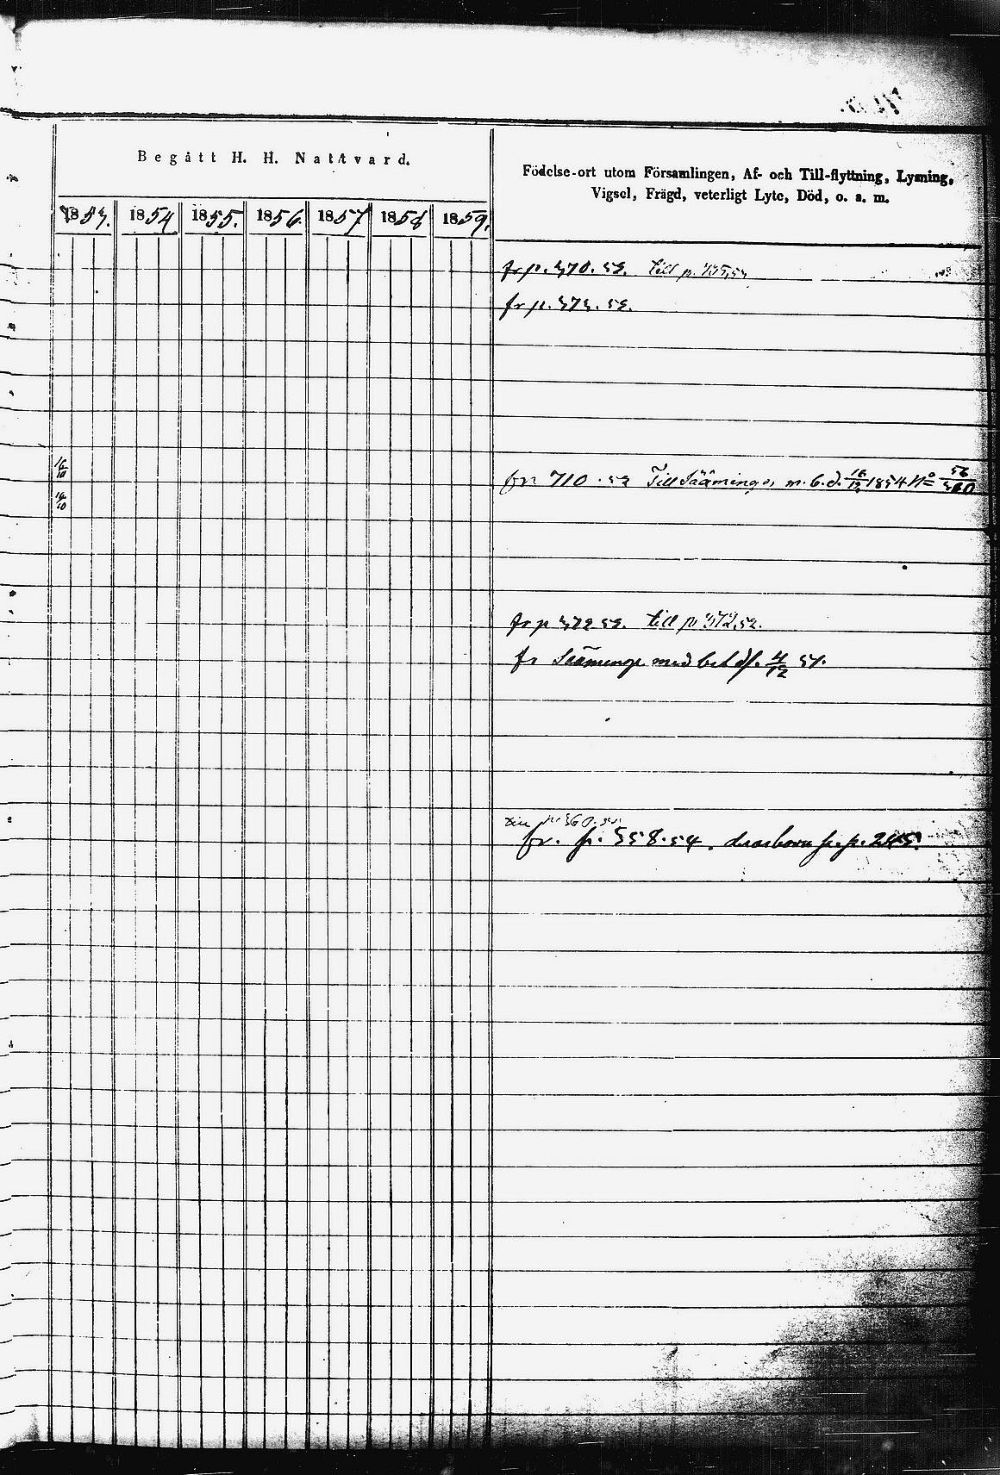 Begått H. H. Nattvard.
Födelse-ort utom Församlingen, Af- och Till-flyttning, Lysning,
Vigsel, Frägd, veterligt Lyte, Död, o. s. m.
1853. 1854 1855. 1856. 1857 1858 1859.
fr p. 370. 53. till p.
fr p. 373. 53.
16/10
fr. 710. 53 Till Sääminge, m. b. d. 16/12 1854 No 56/560
16/10
fr p 372 53. till p 372 53.
fr Sääminge med bet df. 4/12 54.
p. 360. 54.
fr. p. 558. 54. p. 245.